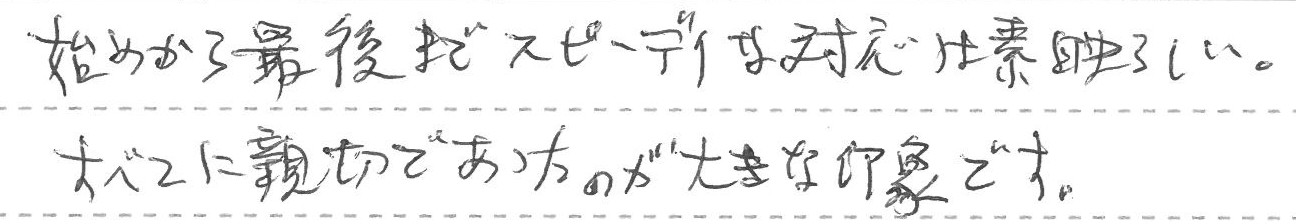 始めから最後までスピーディな対応は素映らしい。
すべてに親切であったのが大きな印象です。